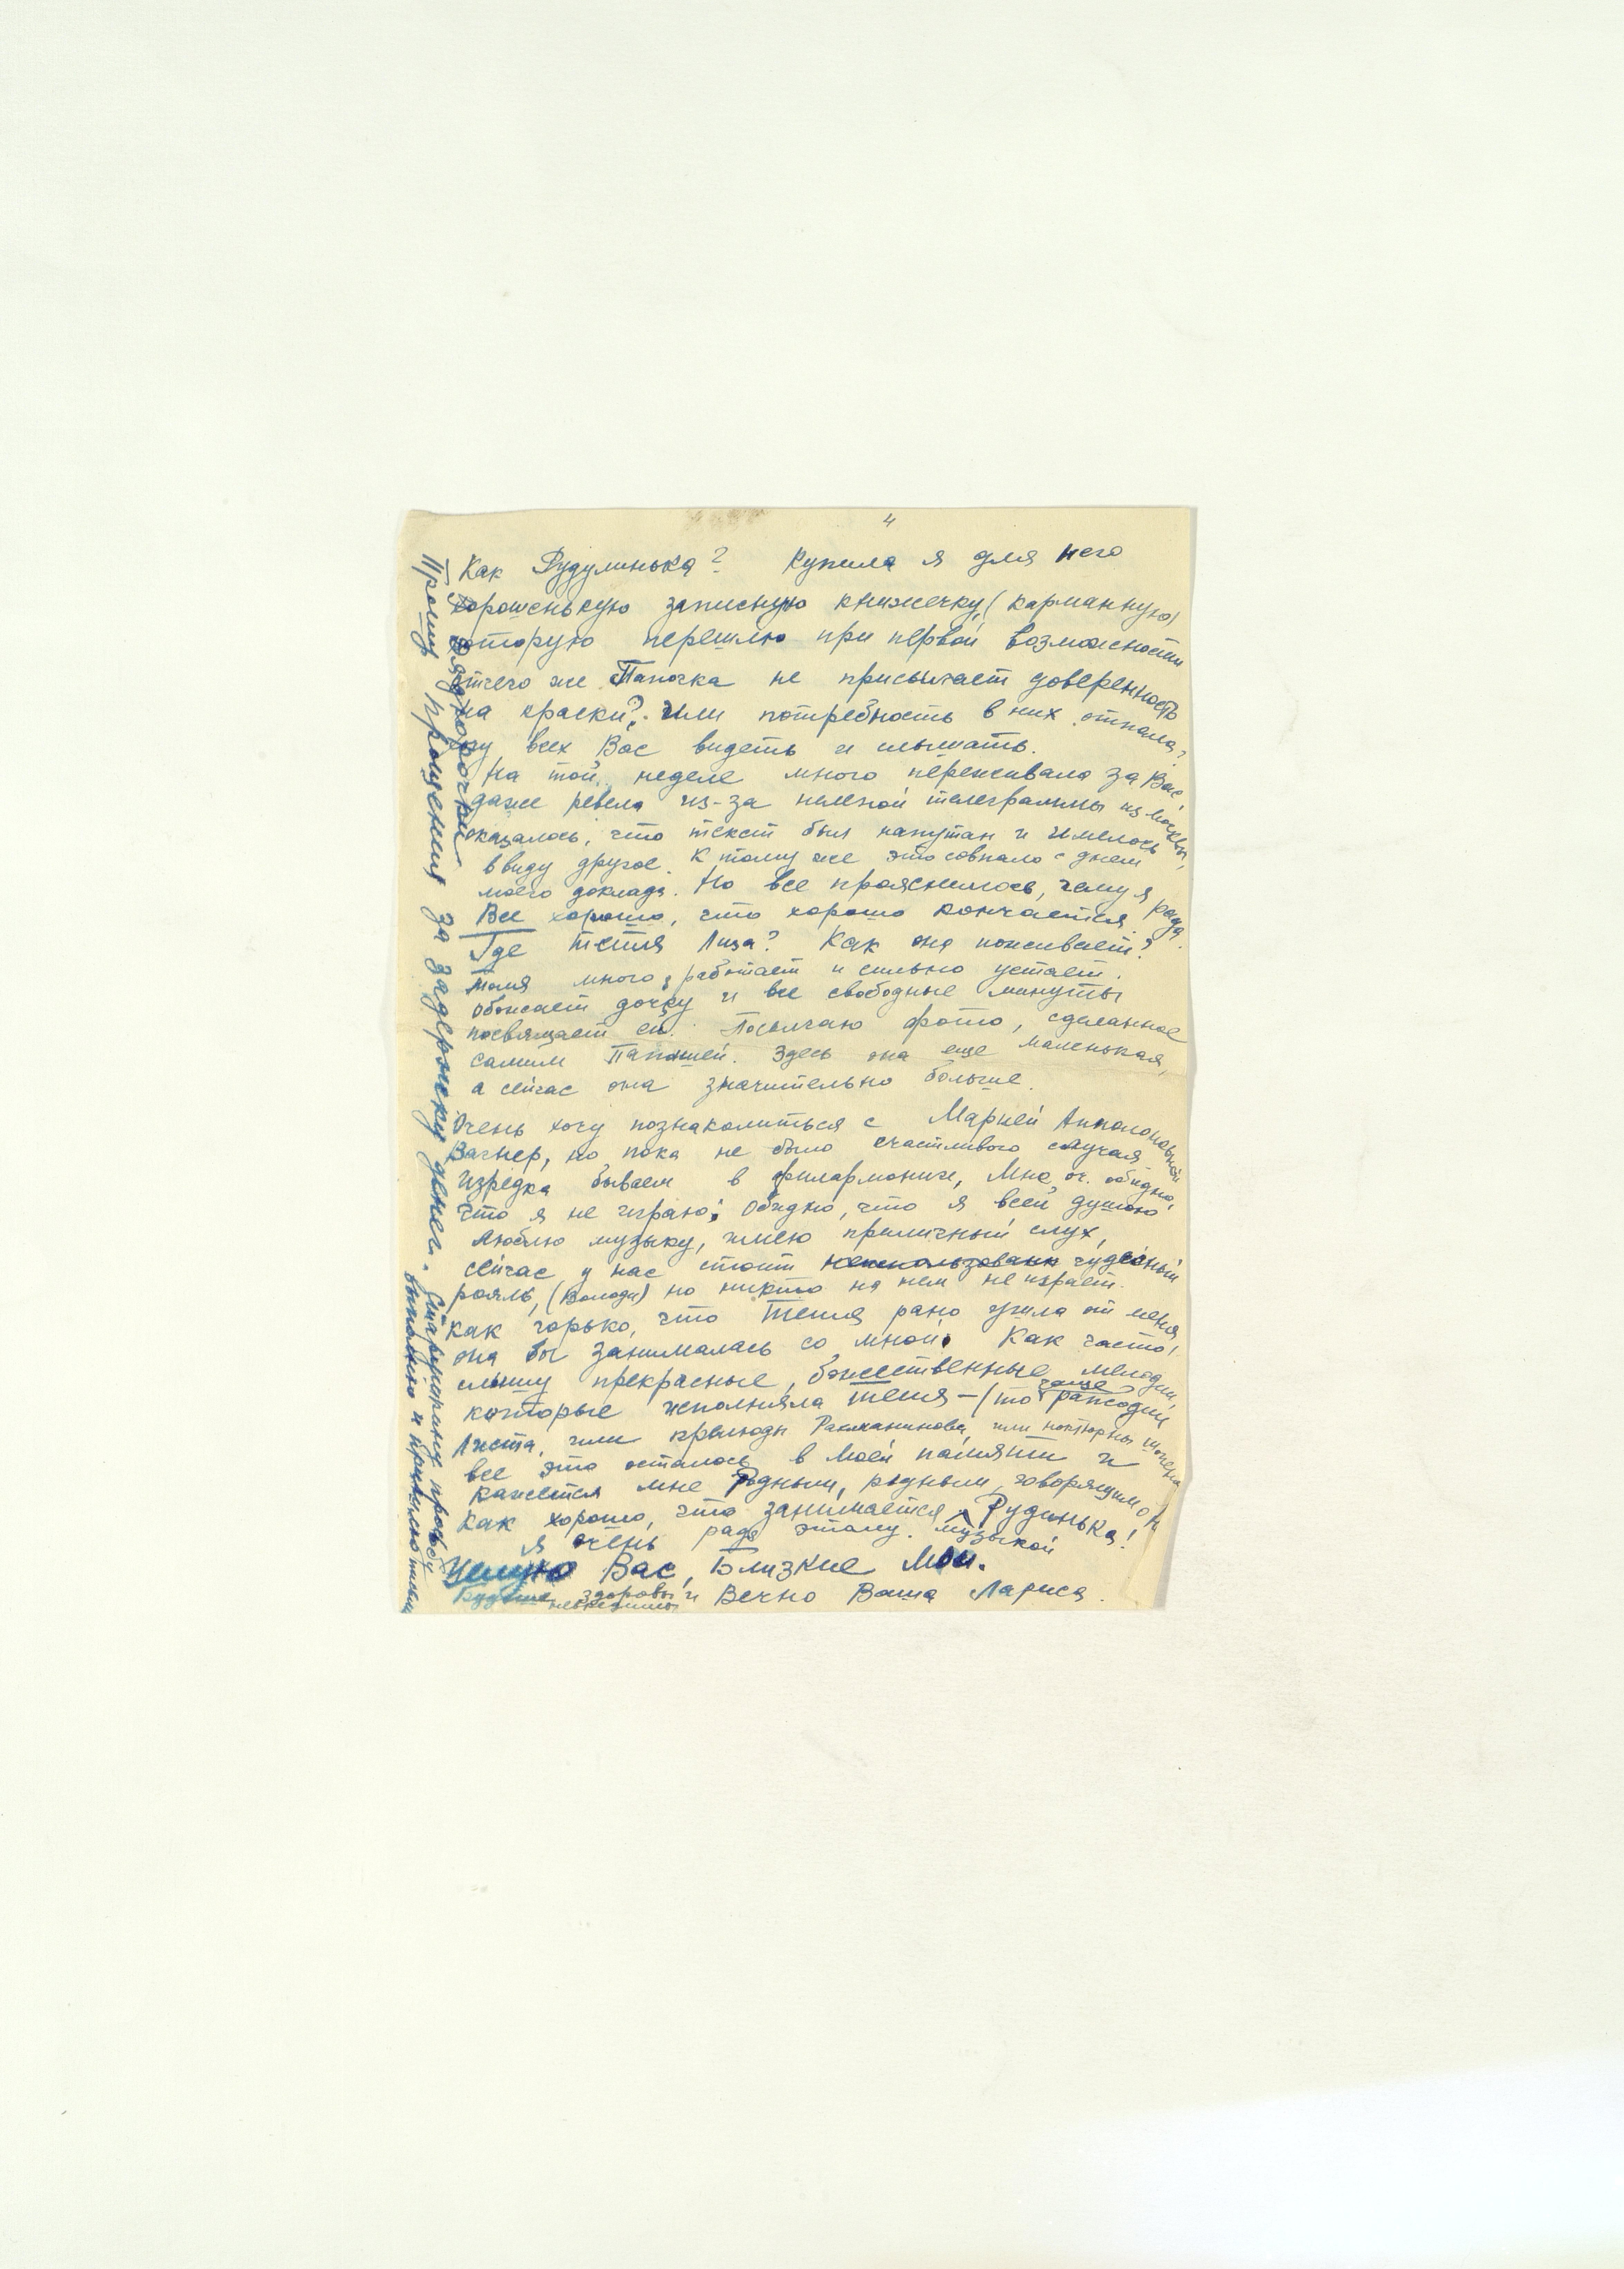 4
Как Рудулинька? Купила я для него
хорошенькую записную книжечку, (карманную)
которую перешлю при первой возможности
Отчего же Папочка не присылает доверенность
на краски? Или потребность в них отпала?
Хочу всех Вас видеть и слышать.
На той неделе много переживала за Вас,
даже ревела из-за нелепой телеграммы из Москвы,
оказалось, что текст был напутан и имелось
ввиду другое. К тому же это совпало с днем
моего доклада. Но все прояснилось, чему я рада.
Все хорошо, что хорошо кончается.
Где тетя Лиза? Как она поживает?
Толя много работает и сильно устает.
Обожает дочку и все свободные минуты
посвящает ей. Посылаю фото, сделанное
самим Папашей. Здесь она еще маленькая,
а сейчас она значительно больше.
Очень хочу познакомиться с Марией Апполоновной
Вагнер, но пока не было счастливого случая
Изредка бываем в филармонии, Мне оч. обидно,
что я не играю; Обидно, что я всей душою
люблю музыку, имею приличный слух,
сейчас у нас стоит чудесный
рояль, (Володи) но никто на нем не играет.
Как горько, что Теля рано ушла от меня
она бы занималась со мной. Как часто
слышу прекрасные, божественные мелодии,
которые исполняла Теля - (то чаще рапсодии
Листа, или прелюды Рахманинова, или ноктюрны Шопена
все это осталось в моей памяти и
кажется мне родным, родным, говорящим о Т
Как хорошо, что занимается музыкой Рудинька!
Я очень рада этому.
Целую Вас, Близкие Мои.
Будьте здоровы и невредимы Вечно Ваша Лариса.
Прошу прощения за задержку денег.
дядюрочки
выполню и пришлю